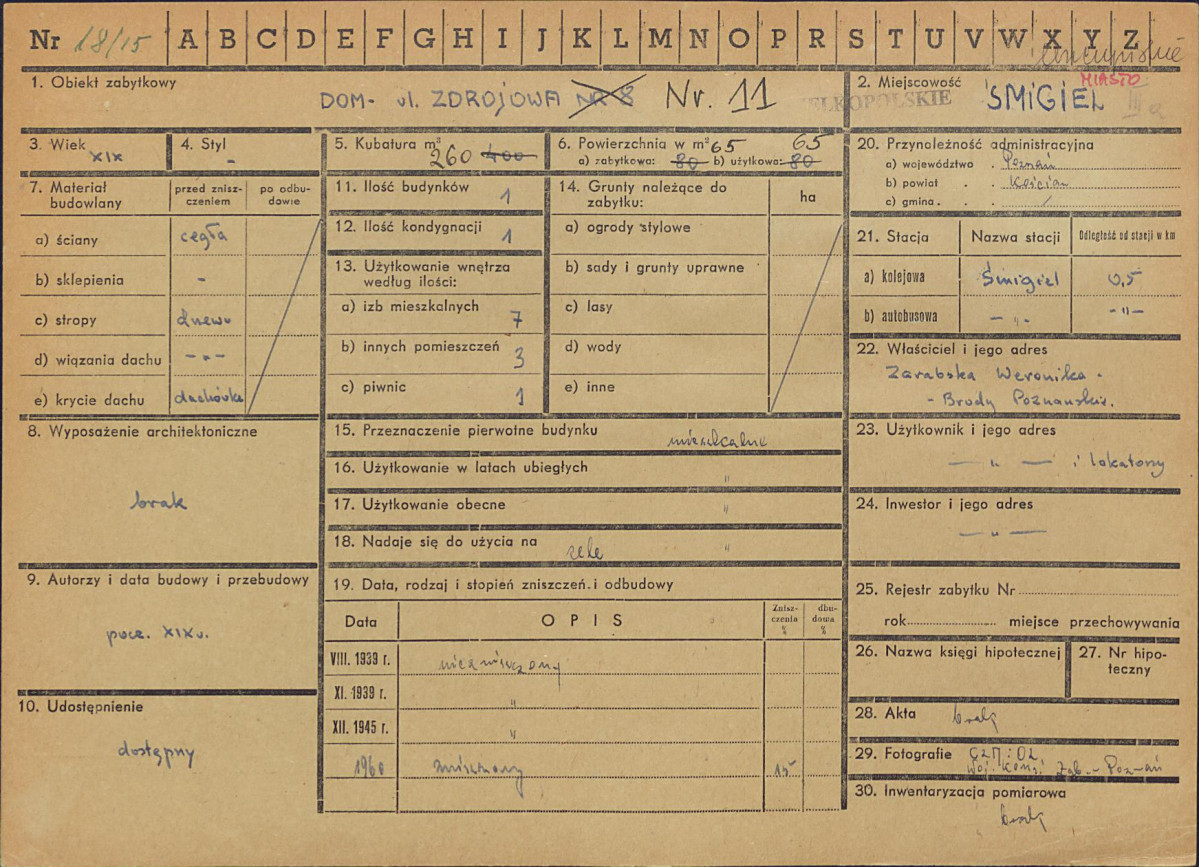 Nr 18/15 A B C D E F G H I J K L M N O P R S T U V W X Y Z
1. Obiekt zabytkowy
DOM - ul. ZDROJOWA NR 8 Nr. 11
2. Miejscowość MIASTO
WIELKOPOLSKIE ŚMIGIEL III a
3. Wiek XIX
4. Styl -
5. Kubatura m³ 260 400
6. Powierzchnia w m² 65 65
a) zabytkowa: 80 b) użytkowa: 80
7. Materiał budowlany
przed zniszczeniem
po odbudowie
a) ściany cegła
b) sklepienia -
c) stropy drewn
d) wiązania dachu - „ -
e) krycie dachu dachówka
8. Wyposażenie architektoniczne
brak
9. Autorzy i data budowy i przebudowy
pocz. XIX w.
10. Udostępnienie
dostępny
11. Ilość budynków 1
12. Ilość kondygnacji 1
13. Użytkowanie wnętrza według ilości:
a) izb mieszkalnych 7
b) innych pomieszczeń 3
c) piwnic 1
14. Grunty należące do zabytku: ha
a) ogrody stylowe
b) sady i grunty uprawne
c) lasy
d) wody
e) inne
15. Przeznaczenie pierwotne budynku mieszkalne
16. Użytkowanie w latach ubiegłych "
17. Użytkowanie obecne "
18. Nadaje się do użycia na cele "
19. Data, rodzaj i stopień zniszczeń i odbudowy
Data OPIS Zniszczenia % dbudowa %
VIII. 1939 r. niezniszczony
XI. 1939 r. "
XII. 1945 r. "
1960 zniszczony 15
20. Przynależność administracyjna
a) województwo . Poznań
b) powiat . . Kościan
c) gmina . . . /
21. Stacja Nazwa stacji Odległość od stacji w km
a) kolejowa Śmigiel 0,5
b) autobusowa - " - - " -
22. Właściciel i jego adres
Zarabska Weronika -
- Brody Poznańskie.
23. Użytkownik i jego adres
— " — i lokatorzy
24. Inwestor i jego adres
— " —
25. Rejestr zabytku Nr
rok miejsce przechowywania
26. Nazwa księgi hipotecznej
27. Nr hipoteczny
28. Akta brak
29. Fotografie CZM i OZ
Woj. Kons. Zab. - Poznań
30. Inwentaryzacja pomiarowa
brak